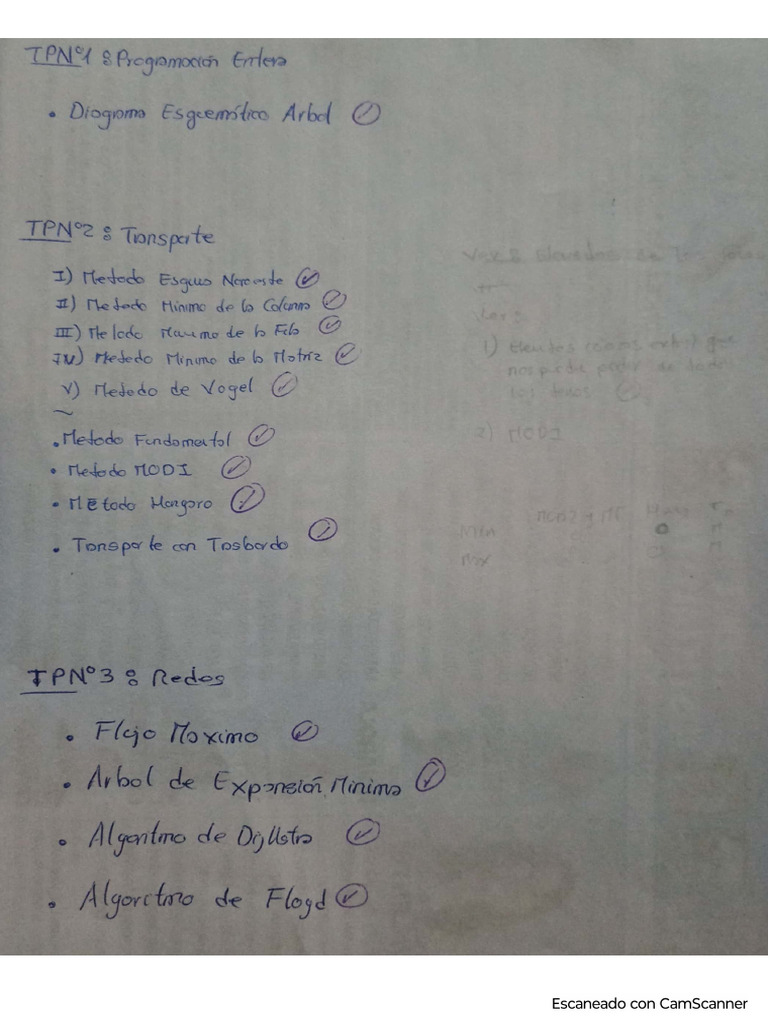 TPN°1 : Programación Entera
• Diagrama Esquemático Arbol
TPN°2 : Transporte
I) Metodo Esquina Noroeste
II) Metodo Minimo de la Columna
III) Metodo Maximo de la Fila
IV) Metodo Minimo de la Matriz
V) Metodo de Vogel
~
• Metodo Fundamental
• Metodo MODI
• Metodo Hangaro
• Transporte con Trasbordo
1)
2) MODI
TPN°3 : Redes
• Flujo Maximo
• Arbol de Expansión Minima
• Algoritmo de Dijkstra
• Algoritmo de Floyd
Escaneado con CamScanner